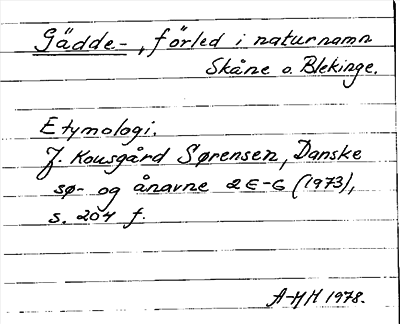 Gädde-, förled i naturnamn
Skåne o. Blekinge.
Etymologi.
J. Kousgård Sørensen, Danske
sø- og ånavne 2 E-G (1973),
s. 204 f.
A-MH 1978.